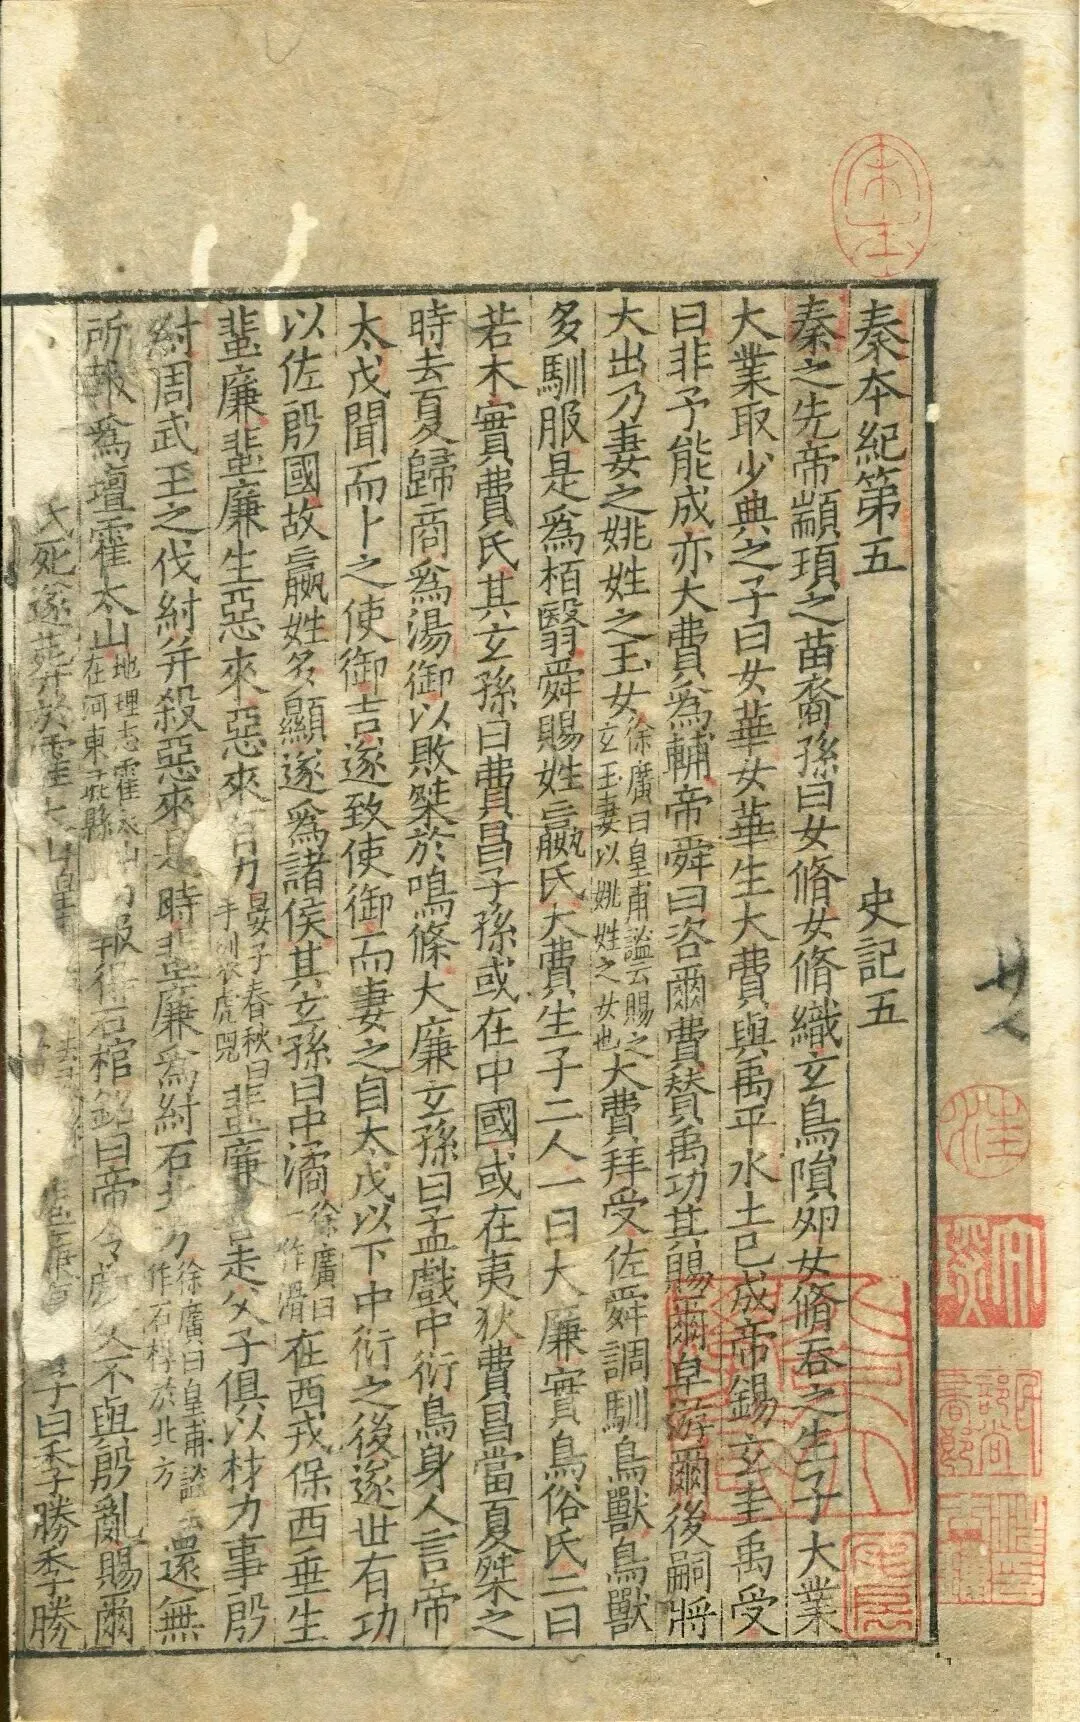 秦本紀第五　史記五
秦之先帝顓頊之苗裔孫曰女脩女脩織玄鳥隕卵女脩吞之生子大業
大業取少典之子曰女華女華生大費與禹平水土已成帝錫玄圭禹受
曰非予能成亦大費爲輔帝舜曰咨爾費贊禹功其賜爾皁游爾後嗣將
大出乃妻之姚姓之玉女徐廣曰皇甫謐云賜之玄玉妻以姚姓之女也大費拜受佐舜調馴鳥獸鳥獸
多馴服是爲栢翳舜賜姓嬴氏大費生子二人一曰大廉實鳥俗氏二曰
若木實費氏其玄孫曰費昌子孫或在中國或在夷狄費昌當夏桀之
時去夏歸商爲湯御以敗桀於鳴條大廉玄孫曰孟戲中衍鳥身人言帝
太戊聞而卜之使御吉遂致使御而妻之自太戊以下中衍之後遂世有功
以佐殷國故嬴姓多顯遂爲諸侯其玄孫曰中潏徐廣曰一作滑在西戎保西垂生
蜚廉蜚廉生惡來惡來有力晏子春秋曰手裂虎兕蜚廉善走父子俱以材力事殷
紂周武王之伐紂并殺惡來是時蜚廉爲紂石北方徐廣曰皇甫謐云作石椁於北方還無
所報爲壇霍太山地理志霍太山在河東彘縣而報得石棺銘曰帝令處父不與殷亂賜爾
氏死遂葬於霍太山 子曰季勝季勝
朱玉
汪
廿